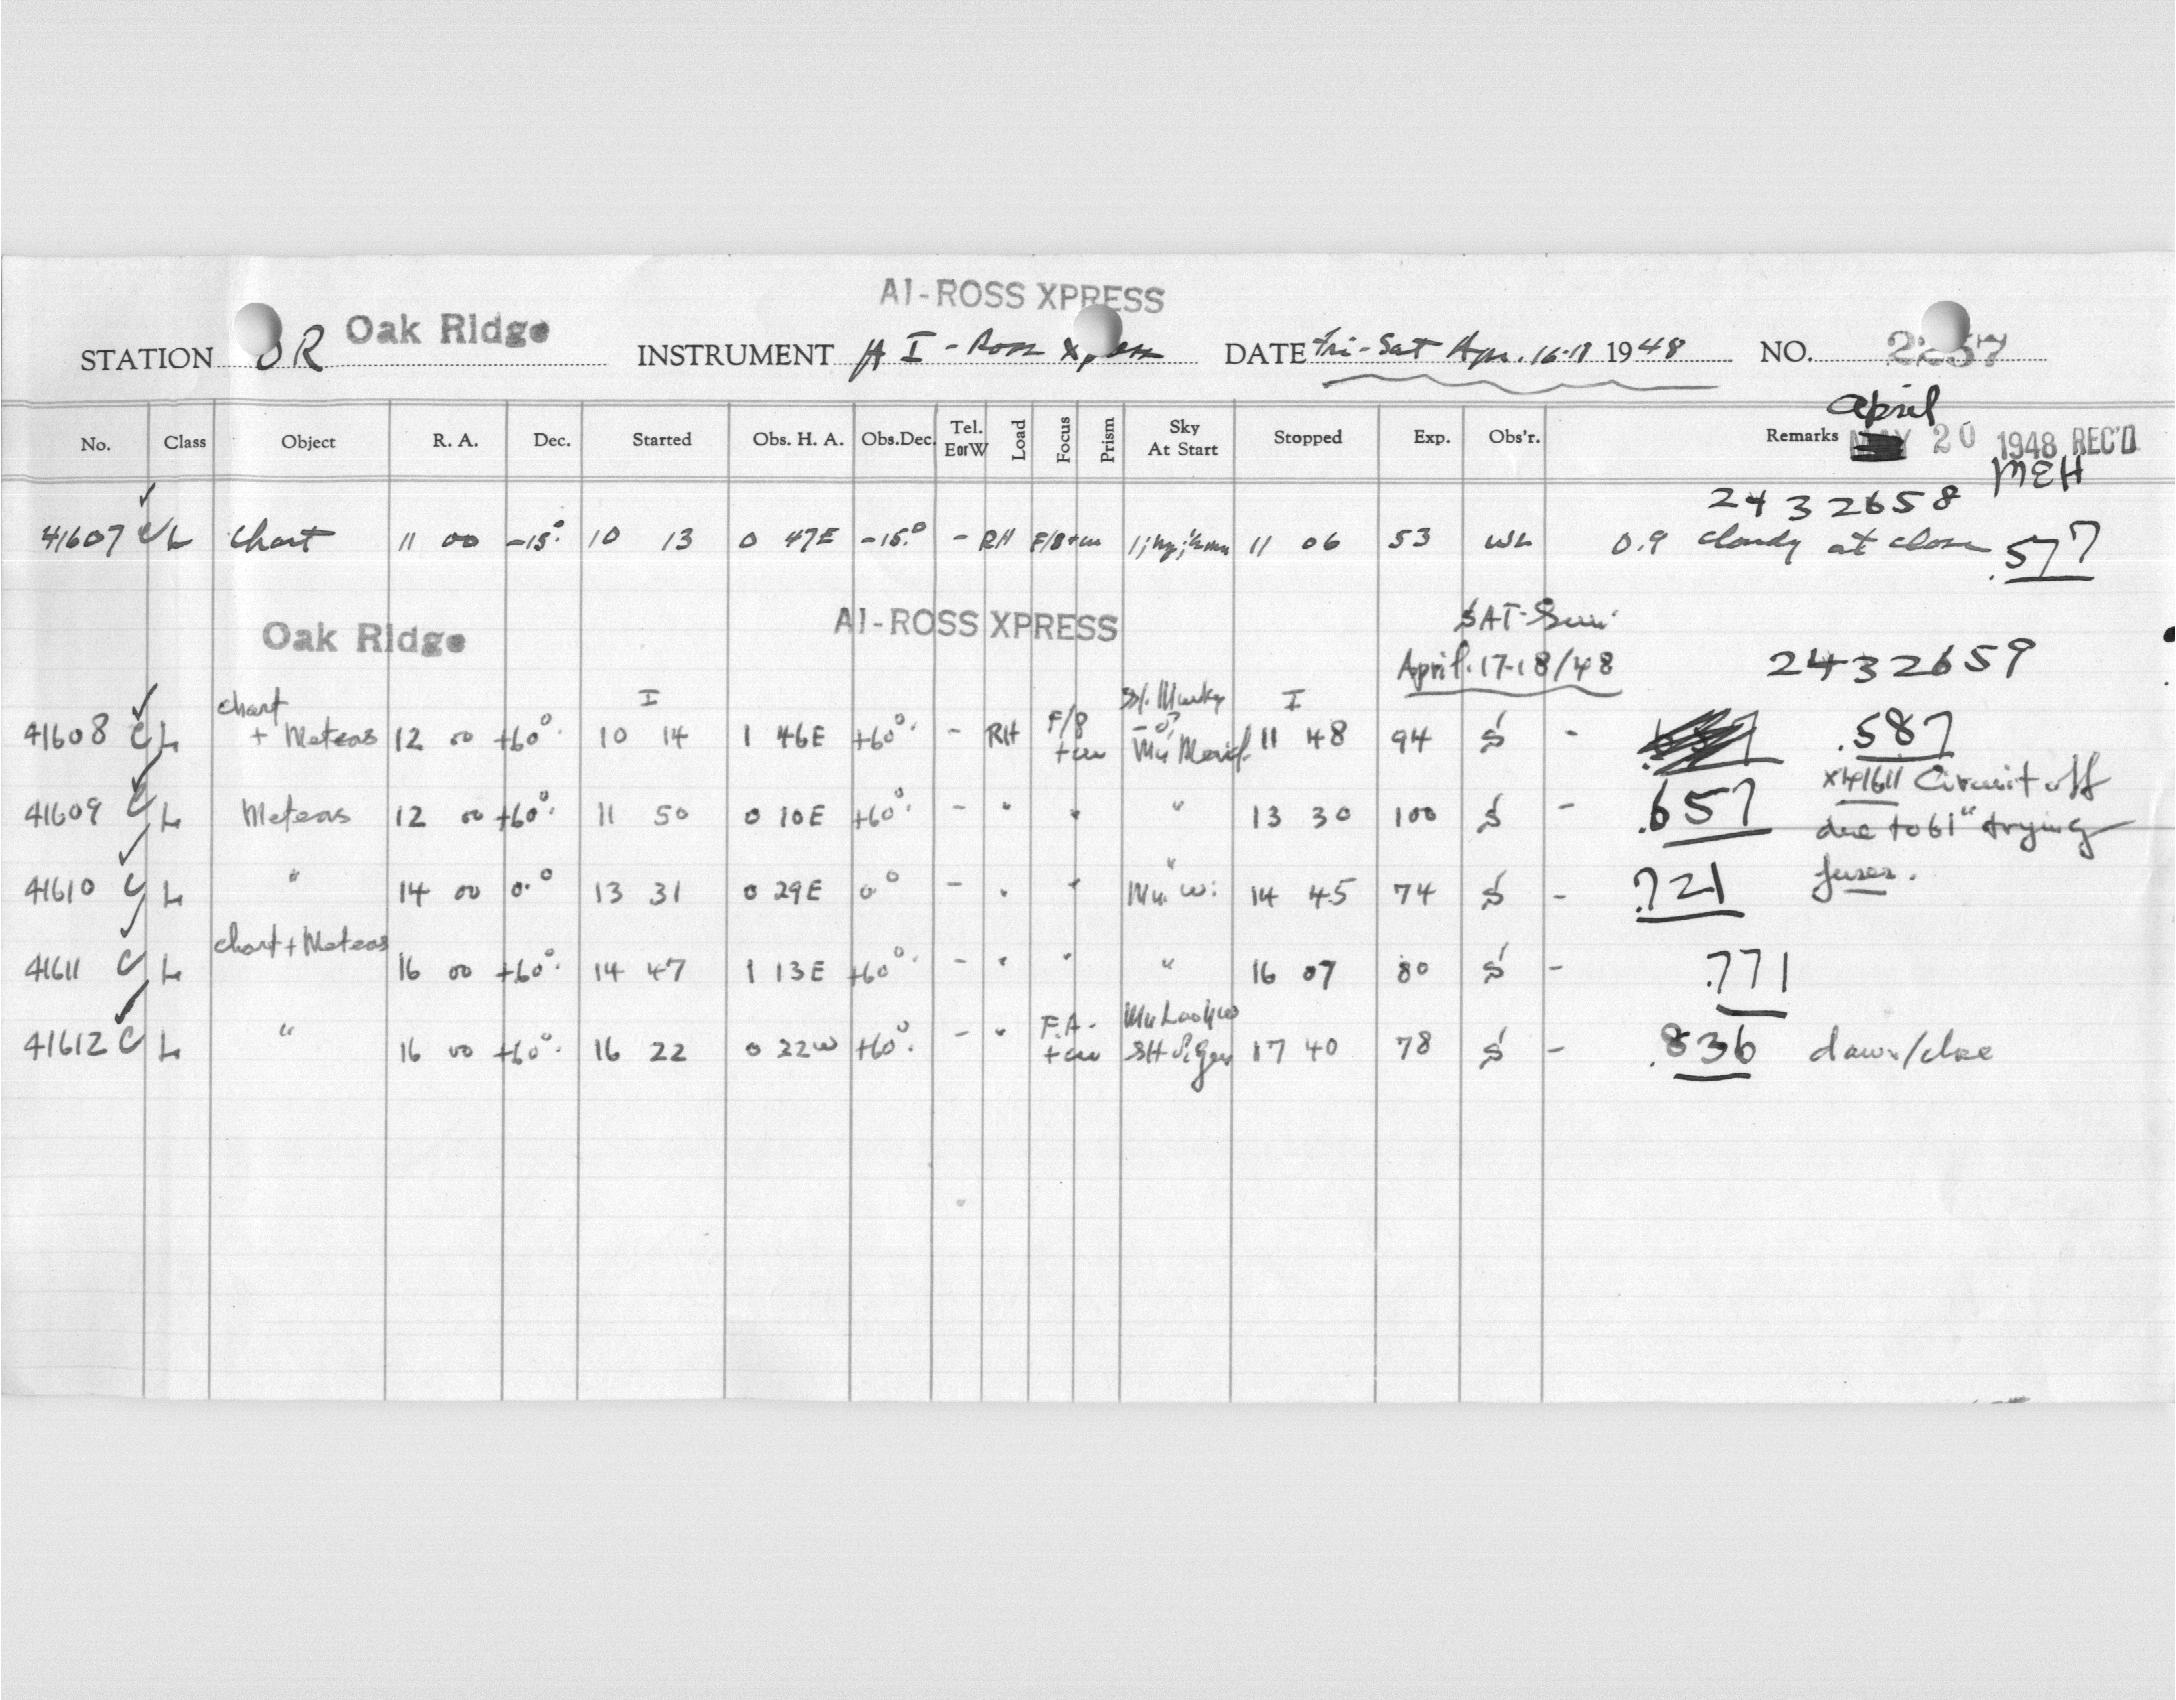 AI-ROSS XPRESS
STATION OR Oak Ridge INSTRUMENT AI - Ross Xpress DATE Fri-Sat Apr. 16-17 1948 NO. 2237
No. Class Object R. A. Dec. Started Obs. H. A. Obs.Dec. Tel. EorW Load Focus Prism Sky At Start Stopped Exp. Obs'r. Remarks April 20 1948 REC'D
MEH
2432658
41607 C L Chart 11 00 -15° 10 13 0 47E -15° - RH F/8+cw 11 06 53 WL 0.9 cloudy at close .577
Oak Ridge AI-ROSS XPRESS SAT-Sun
April 17-18/48 2432659
41608 C L chart + Meteors 12 00 +60° I 10 14 1 46E +60° - RH F/8 +cw Sl. Murky I 11 48 94 S - .587
41609 C L Meteors 12 00 +60° 11 50 0 10E +60° - " " " 13 30 100 S - .657 x41611 Circuit off
due to 61" trying
41610 C L " 14 00 0° 13 31 0 29E 0° - " " " W: 14 45 74 S - .721 fuses.
41611 C L chart + Meteors 16 00 +60° 14 47 1 13E +60° - " " " 16 07 80 S - .771
41612 C L " 16 00 +60° 16 22 0 22W +60° - " F.A. +cw 17 40 78 S - .836 dawn/close